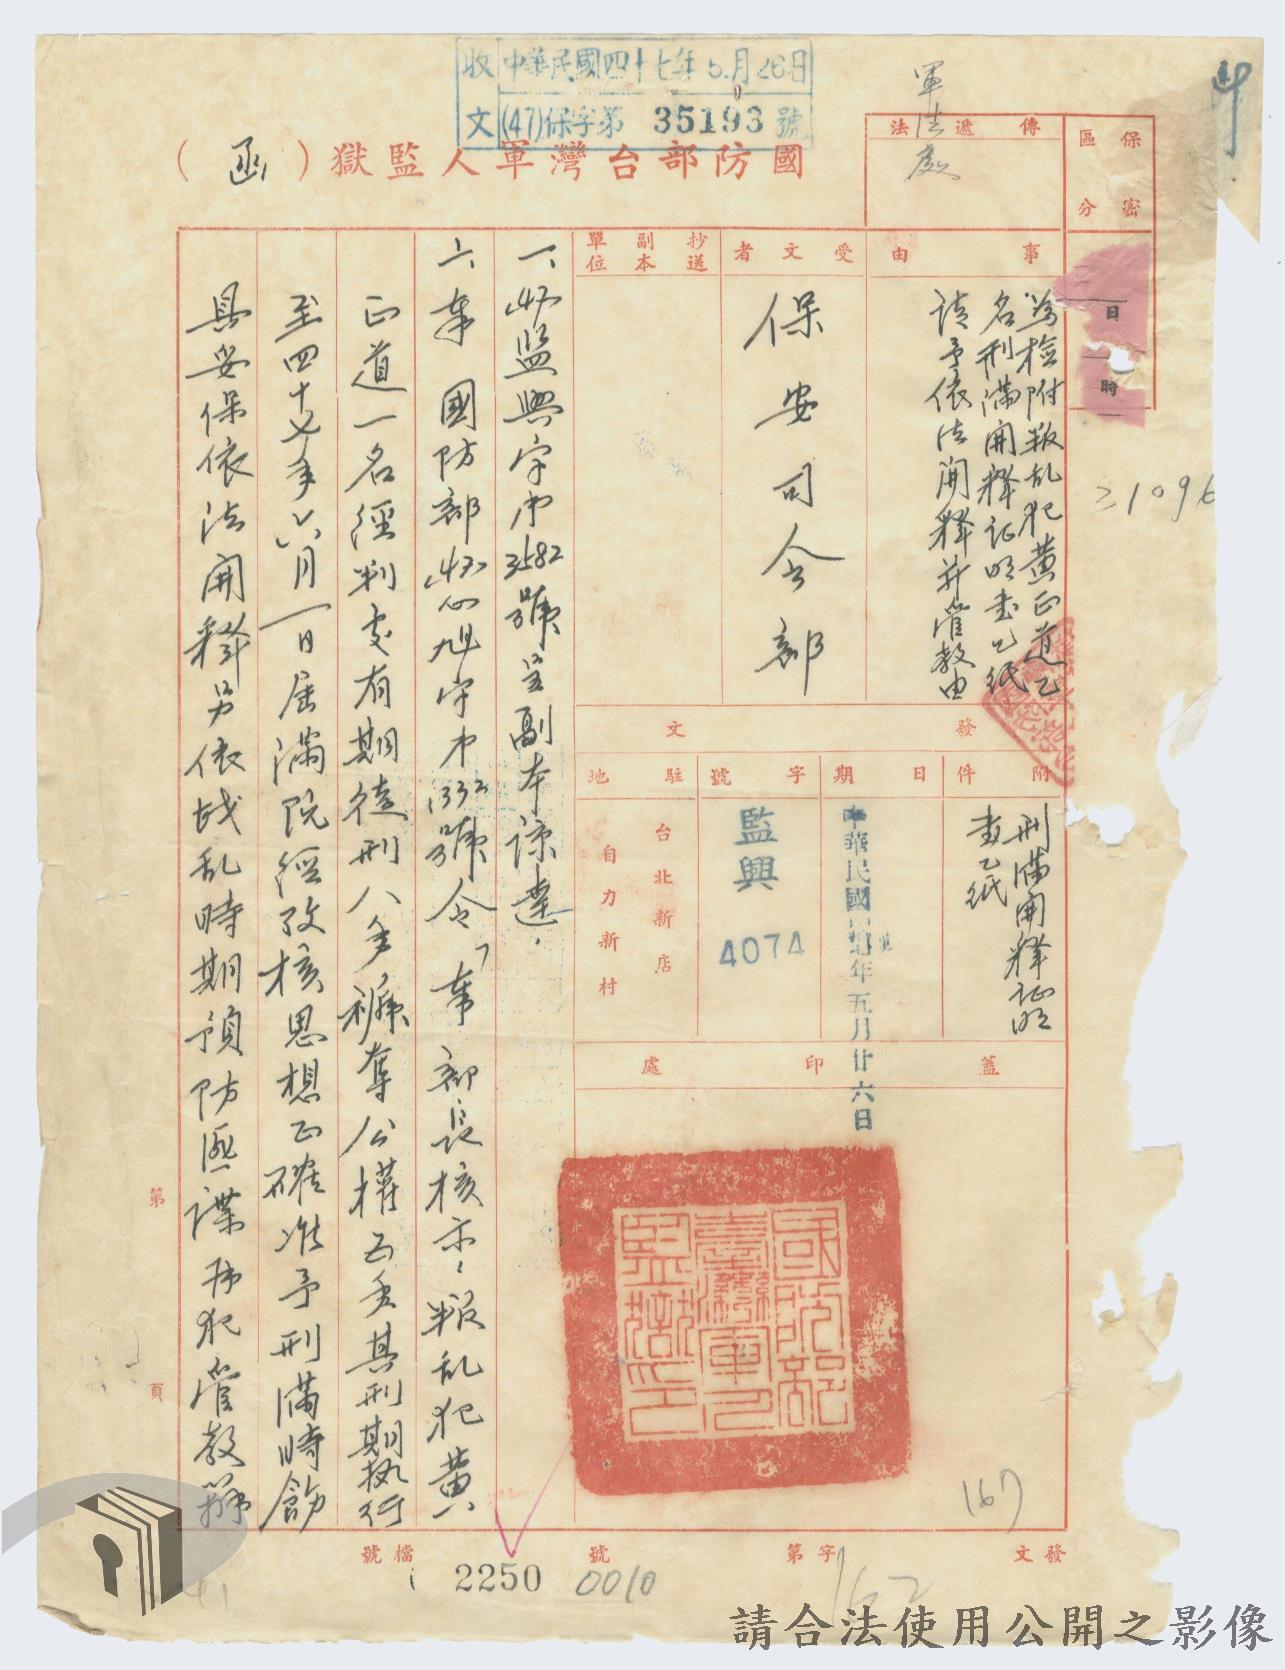 收文 中華民國四十七年5月26日
(47)保字第 35193 號
國防部台灣軍人監獄(函)
傳遞法
軍法處
保密區分
日
時
21096
事由
為檢附叛乱犯黄正道乙
名刑滿開釋証明書乙紙
請予依法開釋并管教由
受文者
保安司令部
抄送副本單位
發文
附件
刑滿開釋証明
書乙紙
日期
中華民國四十七年五月廿六日
字號
監興
4074
駐地
台北新店
自力新村
蓋印處
國防部臺灣軍人監獄印
一、47監興字第3582號呈副本諒達。
六、奉 國防部47心旭字第1332號令「奉部長核示：叛乱犯黄
正道一名經判處有期徒刑八年褫奪公權五年其刑期執行
至四十七年六月一日屆滿既經攷核思想正確准予刑滿時飭
具妥保依法開釋另依戡乱時期預防匪諜再犯管教辦
第 頁
167
發文 字第 號
162
0010
檔號
2250
請合法使用公開之影像